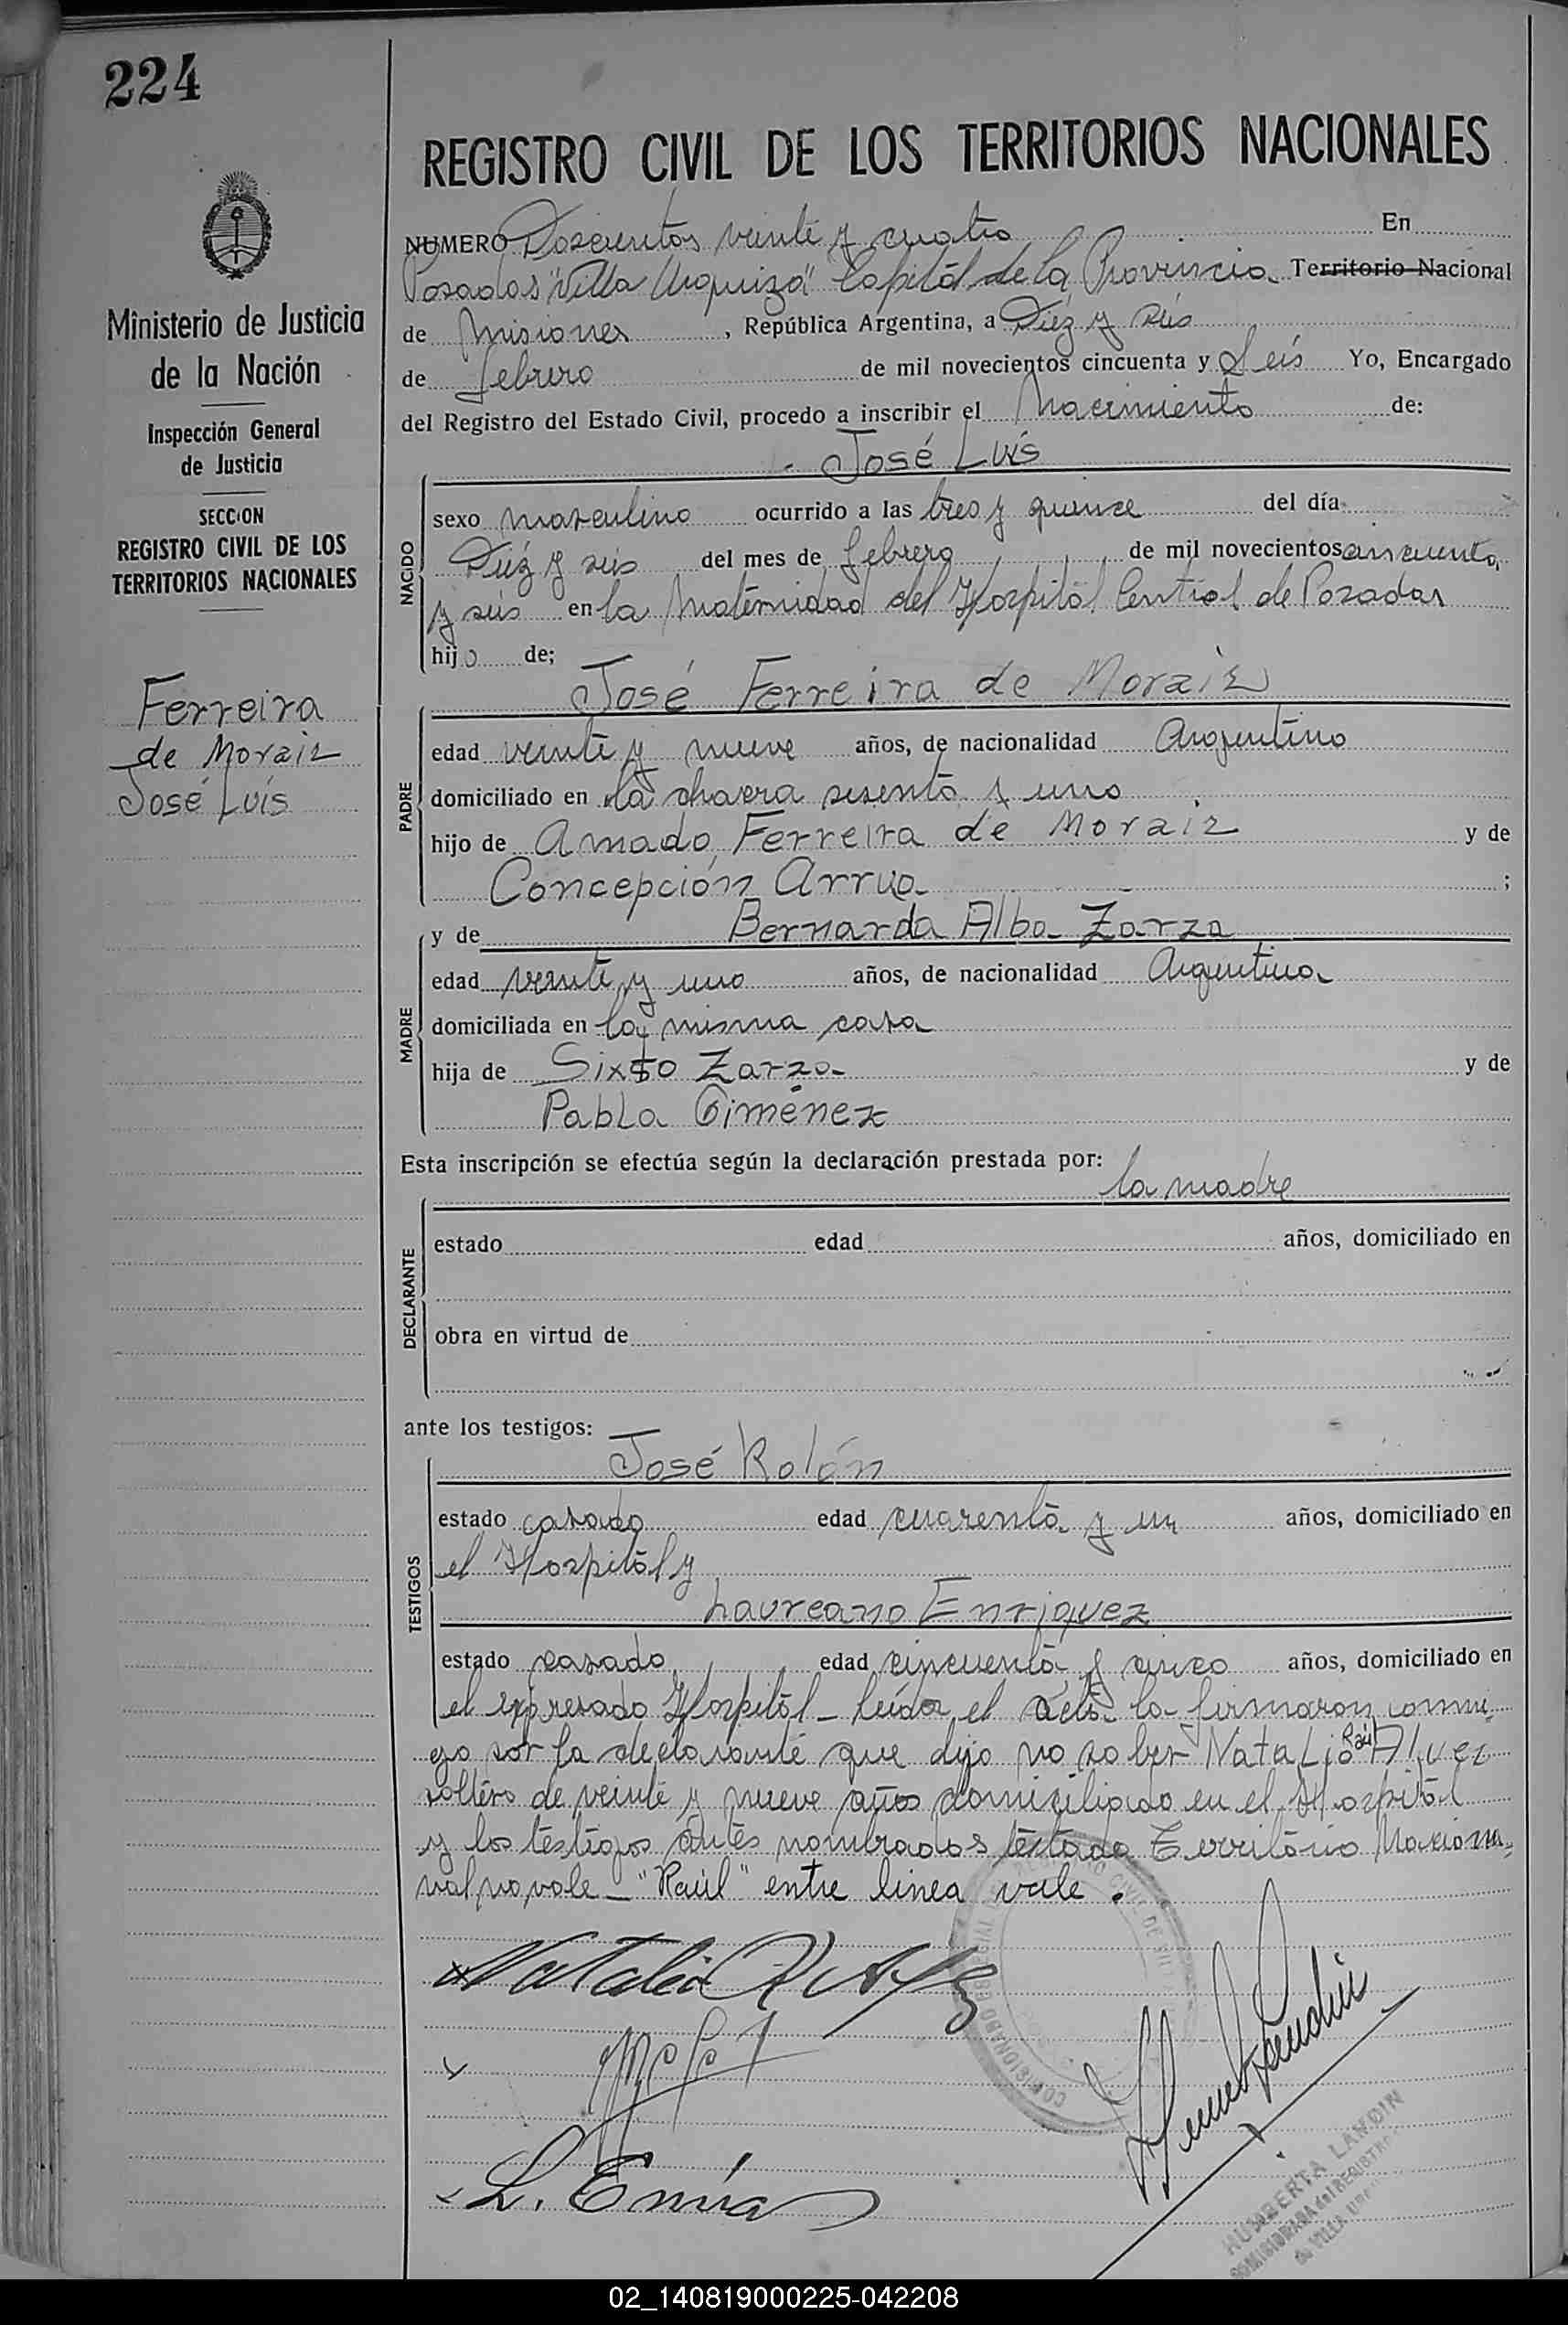 224
REGISTRO CIVIL DE LOS TERRITORIOS NACIONALES
Ministerio de Justicia
de la Nación
Inspección General
de Justicia
SECCION
REGISTRO CIVIL DE LOS
TERRITORIOS NACIONALES
Ferreira
de Moraiz
José Luis
NUMERO Doscientos veinte y cuatro En
Posadas "Villa Urquiza" Capital de la Provincia Territorio Nacional
de Misiones, República Argentina, a Diez y seis
de febrero de mil novecientos cincuenta y Seis Yo, Encargado
del Registro del Estado Civil, procedo a inscribir el Nacimiento de:
José Luis
NACIDO
sexo masculino ocurrido a las tres y quince del día
Diéz y seis del mes de febrero de mil novecientos cincuenta
y seis en la Maternidad del Hospital Central de Posadas
hijo de;
José Ferreira de Moraiz
PADRE
edad veinte y nueve años, de nacionalidad Argentino
domiciliado en la chacra sesenta y uno
hijo de Amado Ferreira de Moraiz y de
Concepción Arrua ;
y de Bernarda Alba Zarza
MADRE
edad veinte y uno años, de nacionalidad Argentina
domiciliada en la misma casa
hija de Sixto Zarza y de
Pabla Giménez
Esta inscripción se efectúa según la declaración prestada por:
la madre
DECLARANTE
estado edad años, domiciliado en
obra en virtud de
ante los testigos:
José Rolón
TESTIGOS
estado casado edad cuarenta y un años, domiciliado en
el Hospital y
Laureano Enriquez
estado casado edad cincuenta y cinco años, domiciliado en
el expresado Hospital - Leída el acta la firmaron conmi-
go por la declarante que dijo no saber Natalio Raúl Alvez
soltero de veinte y nueve años domiciliado en el Hospital
y los testigos antes nombrados testado Territorio Naciona
nal no vale - "Raúl" entre linea vale.
Natalio R Alvez
L. Enriq
HUMBERTA LANDIN
COMISIONADA del REGISTRO
de VILLA
02_140819000225-042208